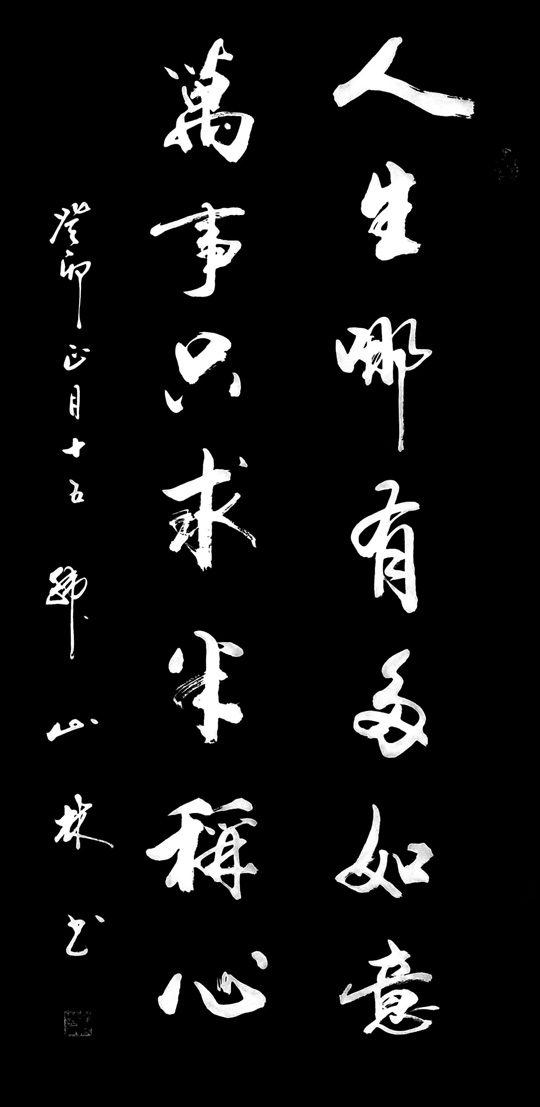 人生哪有多如意
萬事只求半稱心
癸卯正月十五 山林书